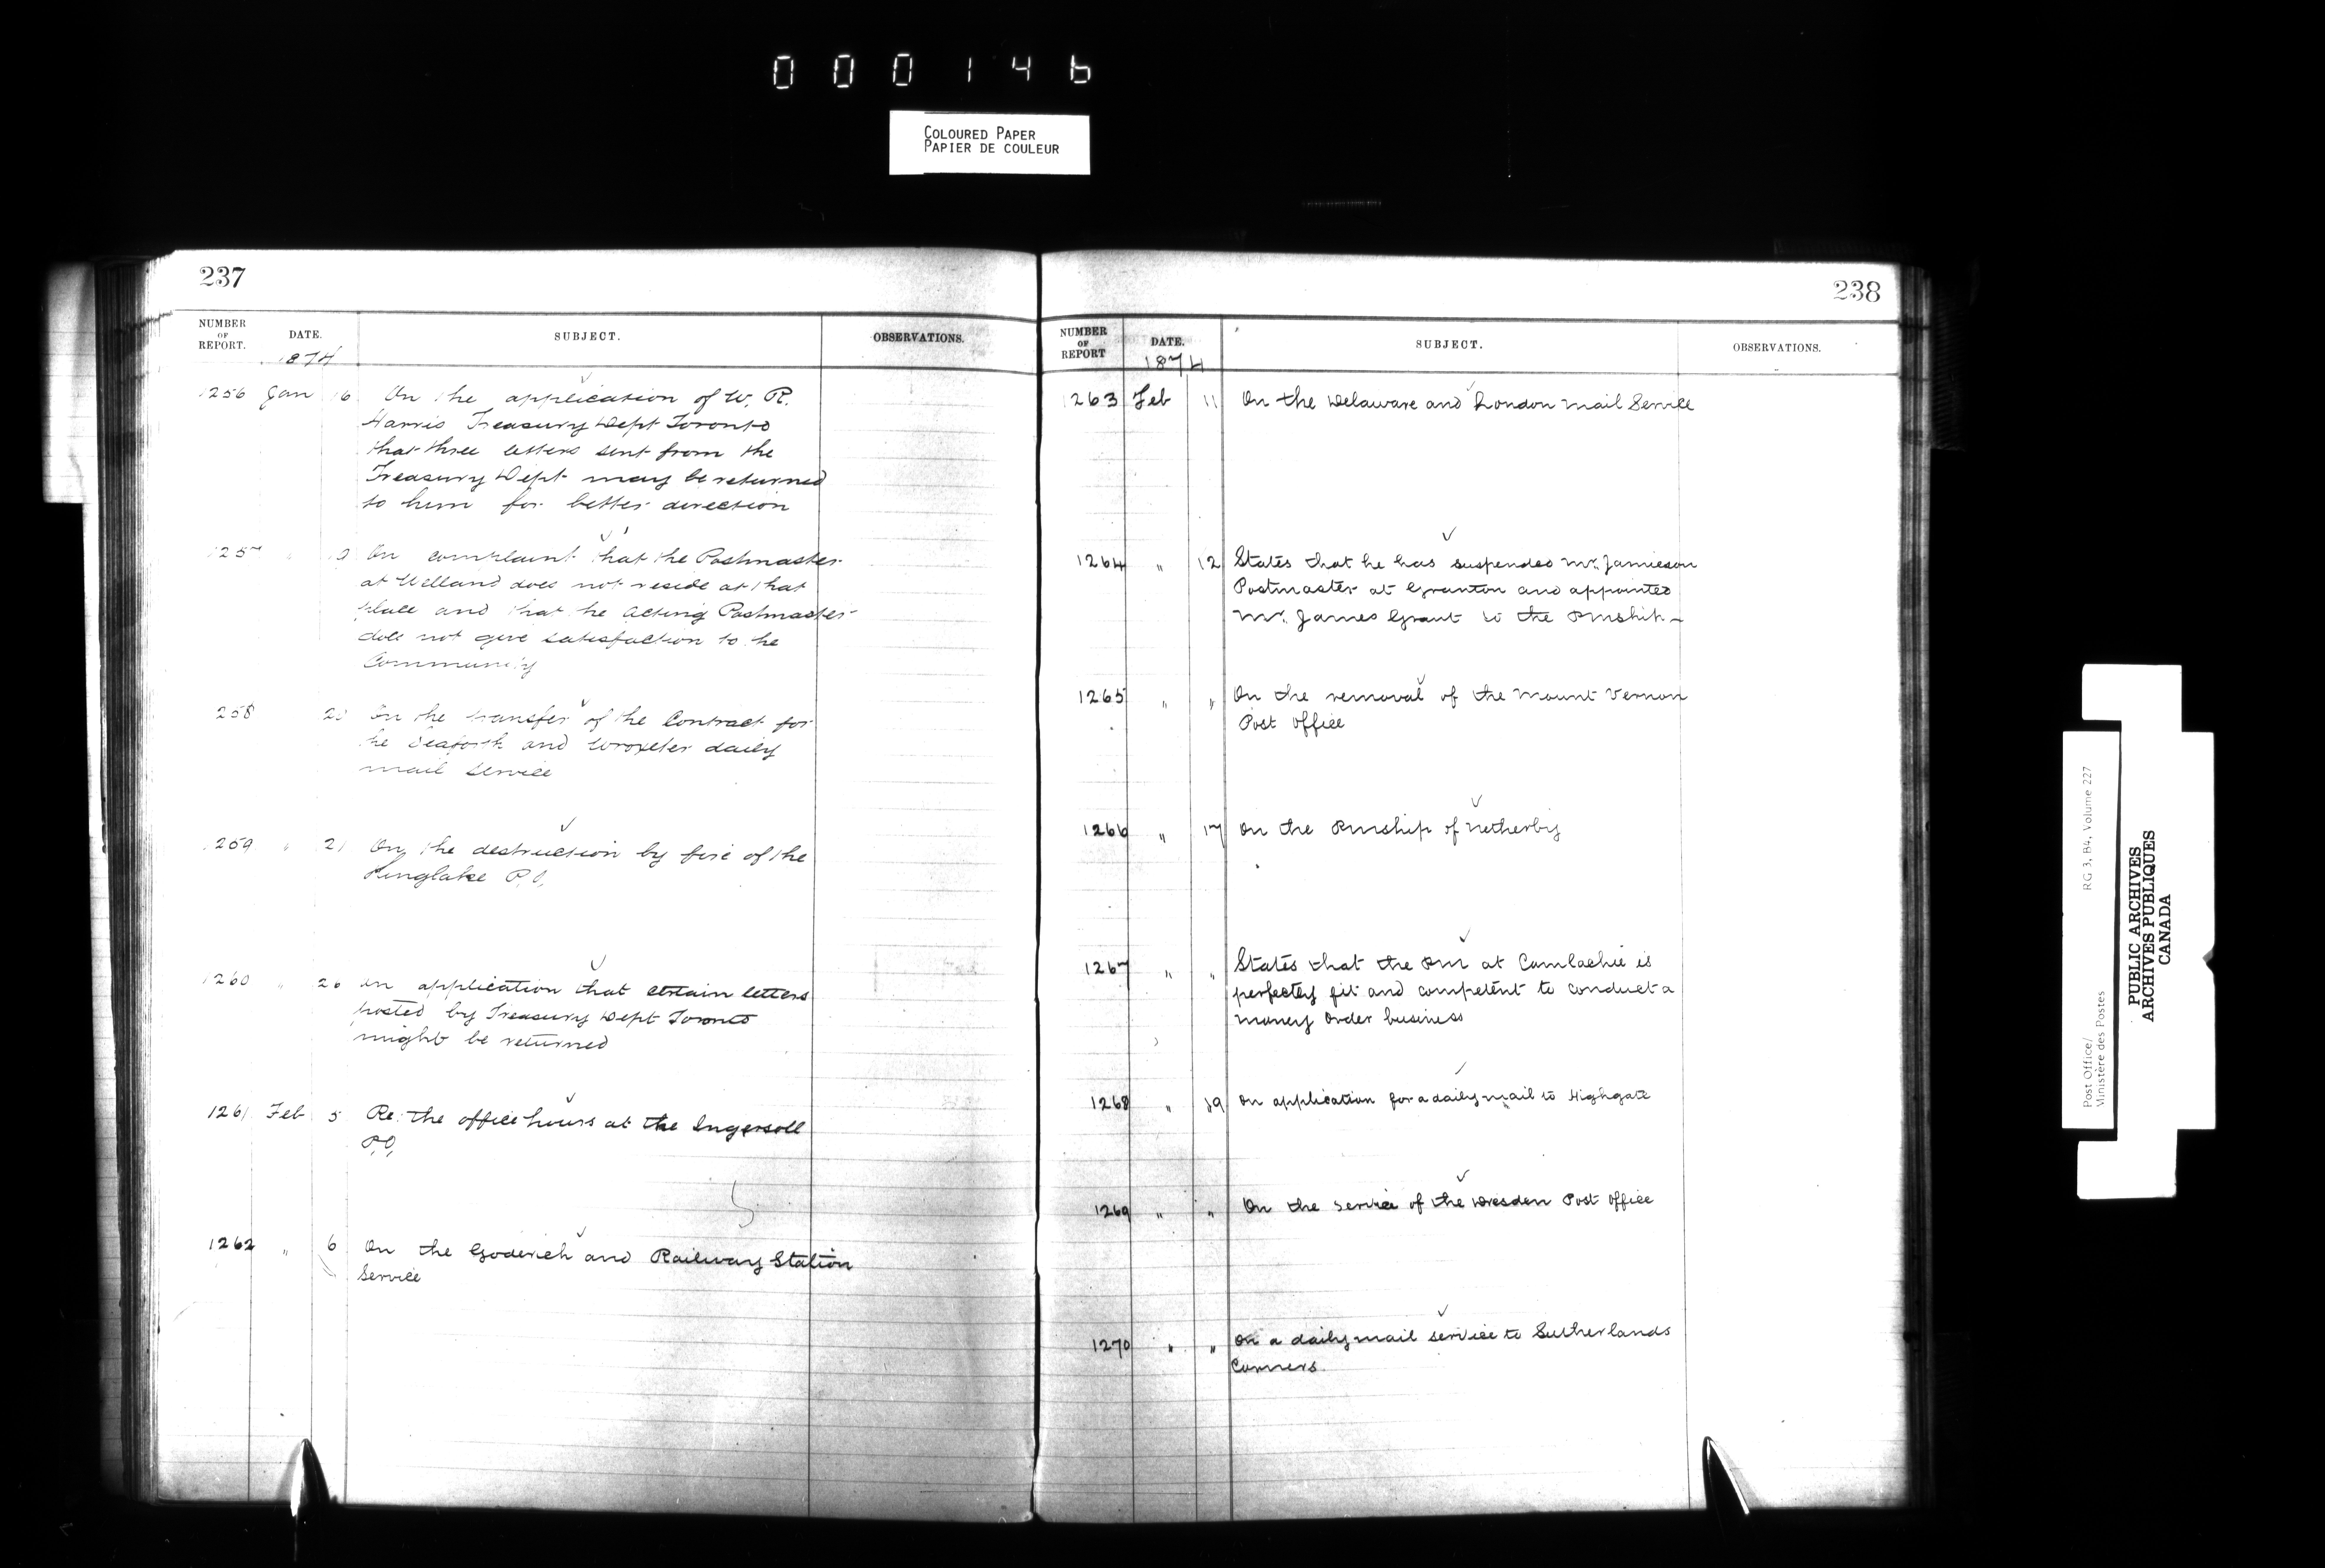 000146
COLOURED PAPER
PAPIER DE COULEUR
237
NUMBER
OF
REPORT.
DATE.
SUBJECT.
OBSERVATIONS.
1874
1256 Jan 16 On the application of W. R.
Harris Treasury Dept Toronto
that three letters sent from the
Treasury Dept may be returned
to him for better direction
1257 " On complaint that the Postmaster
at Welland does not reside at that
place and that the Acting Postmaster
does not give satisfaction to the
Community
258 20 On the transfer of the Contract for
the Seaforth and Wroxeter daily
mail service
1259 " 21 On the destruction by fire of the
Ringlake P.O.
1260 " 26 On application that certain letters
posted by Treasury Dept Toronto
might be returned
1261 Feb 5 Re: the office hours at the Ingersoll
P.O.
1262 " 6 On the Goderich and Railway Station
Service
238
NUMBER
OF
REPORT
DATE.
SUBJECT.
OBSERVATIONS.
1874
1263 Feb 11 On the Delaware and London Mail Service
1264 " 12 States that he has suspended Mr. Jamieson
Postmaster at Granton and appointed
Mr. James Grant to the Pmship -
1265 " " On the removal of the Mount Vernon
Post Office
1266 " 17 On the Pmship of Netherby
1267 " " States that the PM at Camlachie is
perfectly fit and competent to conduct a
money order business
1268 " 19 On application for a daily mail to Highgate
1269 " " On the service of the Dresden Post Office
1270 " " On a daily mail service to Sutherlands
Corners.
Post Office/
Ministère des Postes
RG 3, B4, Volume 227
PUBLIC ARCHIVES
ARCHIVES PUBLIQUES
CANADA